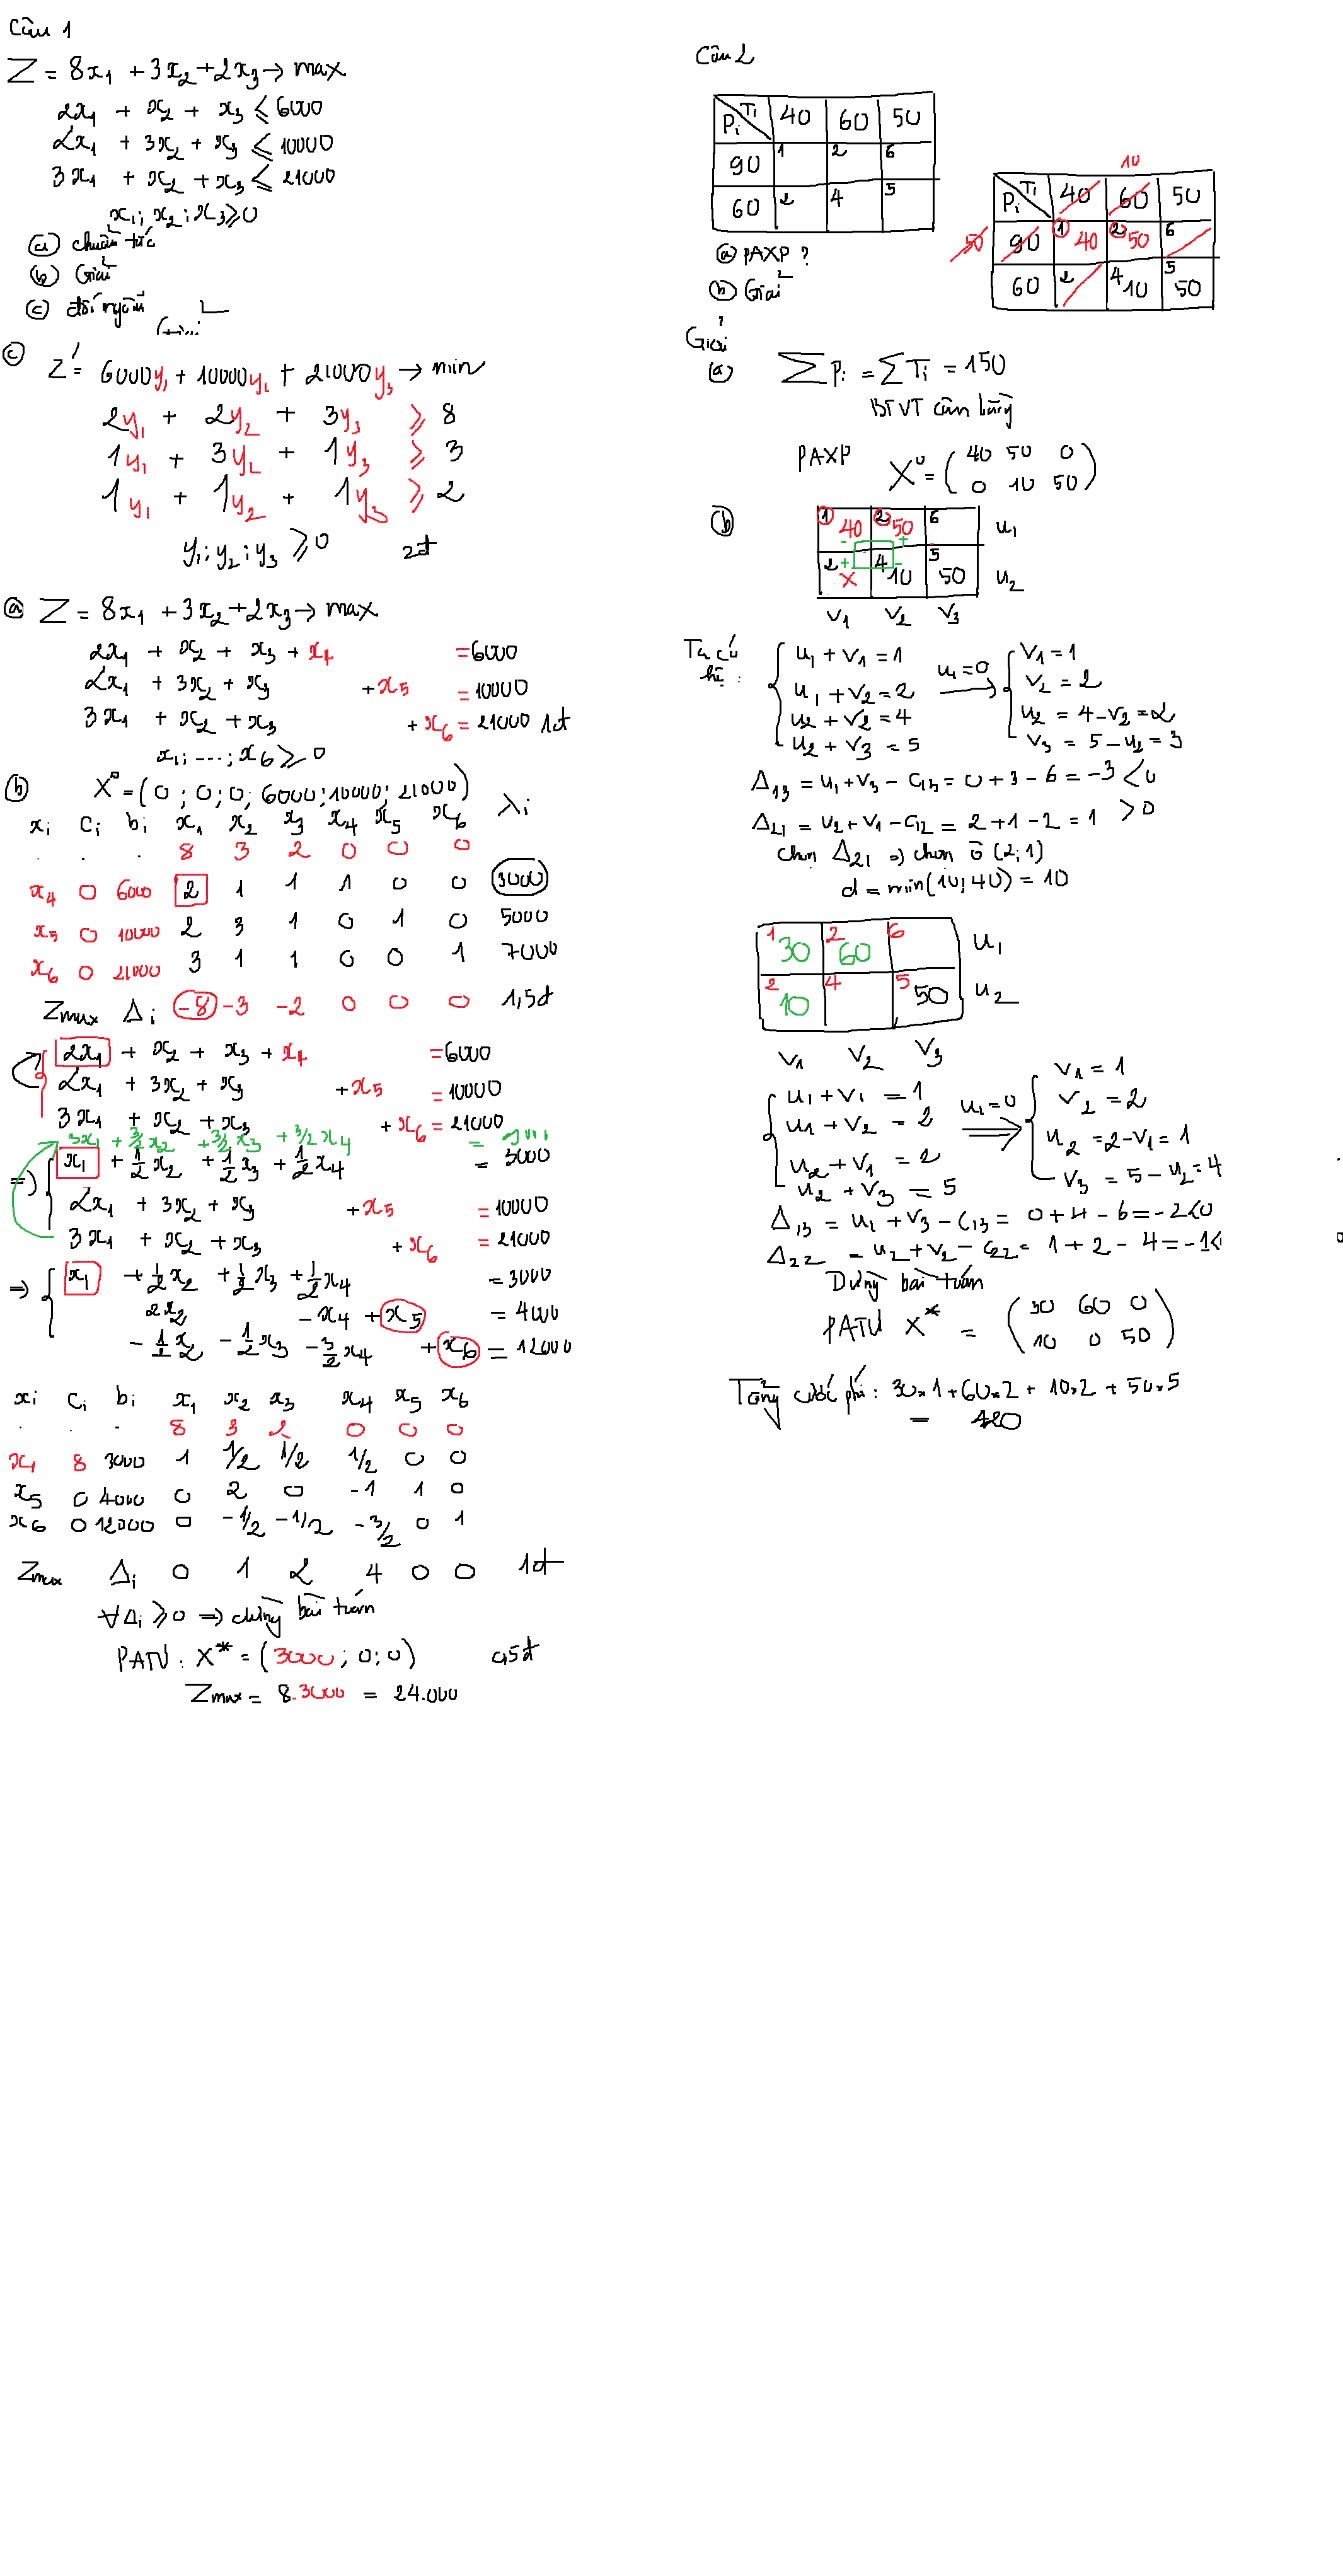 Câu 1
Z = 8x₁ + 3x₂ + 2x₃ → max
2x₁ + x₂ + x₃ ≤ 6000
2x₁ + 3x₂ + x₃ ≤ 10000
3x₁ + x₂ + x₃ ≤ 21000
x₁; x₂; x₃ ≥ 0
(a) chuẩn tắc
(b) Giải
(c) đối ngẫu
(c) Z' = 6000y₁ + 10000y₂ + 21000y₃ → min
2y₁ + 2y₂ + 3y₃ ≥ 8
1y₁ + 3y₂ + 1y₃ ≥ 3
1y₁ + 1y₂ + 1y₃ ≥ 2
y₁; y₂; y₃ ≥ 0 2đ
(a) Z = 8x₁ + 3x₂ + 2x₃ → max
2x₁ + x₂ + x₃ + x₄ = 6000
2x₁ + 3x₂ + x₃ + x₅ = 10000
3x₁ + x₂ + x₃ + x₆ = 21000 1đ
x₁; ...; x₆ ≥ 0
(b) X⁰ = (0; 0; 0; 6000; 10000; 21000)
xi ci bi x₁ x₂ x₃ x₄ x₅ x₆ λi
. . . 8 3 2 0 0 0
x₄ 0 6000 2 1 1 1 0 0 3000
x₅ 0 10000 2 3 1 0 1 0 5000
x₆ 0 21000 3 1 1 0 0 1 7000
Zmax Δi -8 -3 -2 0 0 0 1,5đ
2x₁ + x₂ + x₃ + x₄ = 6000
2x₁ + 3x₂ + x₃ + x₅ = 10000
3x₁ + x₂ + x₃ + x₆ = 21000
3x₁ + 3/2 x₂ + 3/2 x₃ + 3/2 x₄ =
=> x₁ + 1/2 x₂ + 1/2 x₃ + 1/2 x₄ = 3000
2x₁ + 3x₂ + x₃ + x₅ = 10000
3x₁ + x₂ + x₃ + x₆ = 21000
=> x₁ + 1/2 x₂ + 1/2 x₃ + 1/2 x₄ = 3000
2x₂ - x₄ + x₅ = 4000
- 1/2 x₂ - 1/2 x₃ - 3/2 x₄ + x₆ = 12000
xi ci bi x₁ x₂ x₃ x₄ x₅ x₆
. . . 8 3 2 0 0 0
x₁ 8 3000 1 1/2 1/2 1/2 0 0
x₅ 0 4000 0 2 0 -1 1 0
x₆ 0 12000 0 -1/2 -1/2 -3/2 0 1
Zmax Δi 0 1 2 4 0 0 1đ
∀Δi ≥ 0 => dừng bài toán
PATU: X* = (3000; 0; 0) 0,5đ
Zmax = 8.3000 = 24.000
Câu 2
Pi Ti 40 60 50
90 1 2 6
60 2 4 5
(a) PAXP?
(b) Giải
10
Pi Ti 40 60 50
50 90 1 40 2 50 6
60 2 4 10 5 50
Giải
(a) ∑Pi = ∑Ti = 150
BTVT cân bằng
PAXP X⁰ = (40 50 0
0 10 50)
(b) 1 40 2 50 6 u₁
- +
2 x 4 10 5 50 u₂
+ -
v₁ v₂ v₃
Ta có hệ:
u₁ + v₁ = 1
u₁ + v₂ = 2
u₂ + v₂ = 4
u₂ + v₃ = 5
u₁=0 →
v₁ = 1
v₂ = 2
u₂ = 4 - v₂ = 2
v₃ = 5 - u₂ = 3
Δ₁₃ = u₁ + v₃ - c₁₃ = 0 + 3 - 6 = -3 < 0
Δ₂₁ = u₂ + v₁ - c₁₂ = 2 + 1 - 2 = 1 > 0
chọn Δ₂₁ => chọn ô (2;1)
d = min(10; 40) = 10
1 30 2 60 6 u₁
2 10 4 5 50 u₂
v₁ v₂ v₃
u₁ + v₁ = 1
u₁ + v₂ = 2
u₂ + v₁ = 2
u₂ + v₃ = 5
u₁=0 =>
v₁ = 1
v₂ = 2
u₂ = 2 - v₁ = 1
v₃ = 5 - u₂ = 4
Δ₁₃ = u₁ + v₃ - c₁₃ = 0 + 4 - 6 = -2 < 0
Δ₂₂ = u₂ + v₂ - c₂₂ = 1 + 2 - 4 = -1 <
Dừng bài toán
PATU X* = (30 60 0
10 0 50)
Tổng cước phí: 30.1 + 60.2 + 10.2 + 50.5
= 420